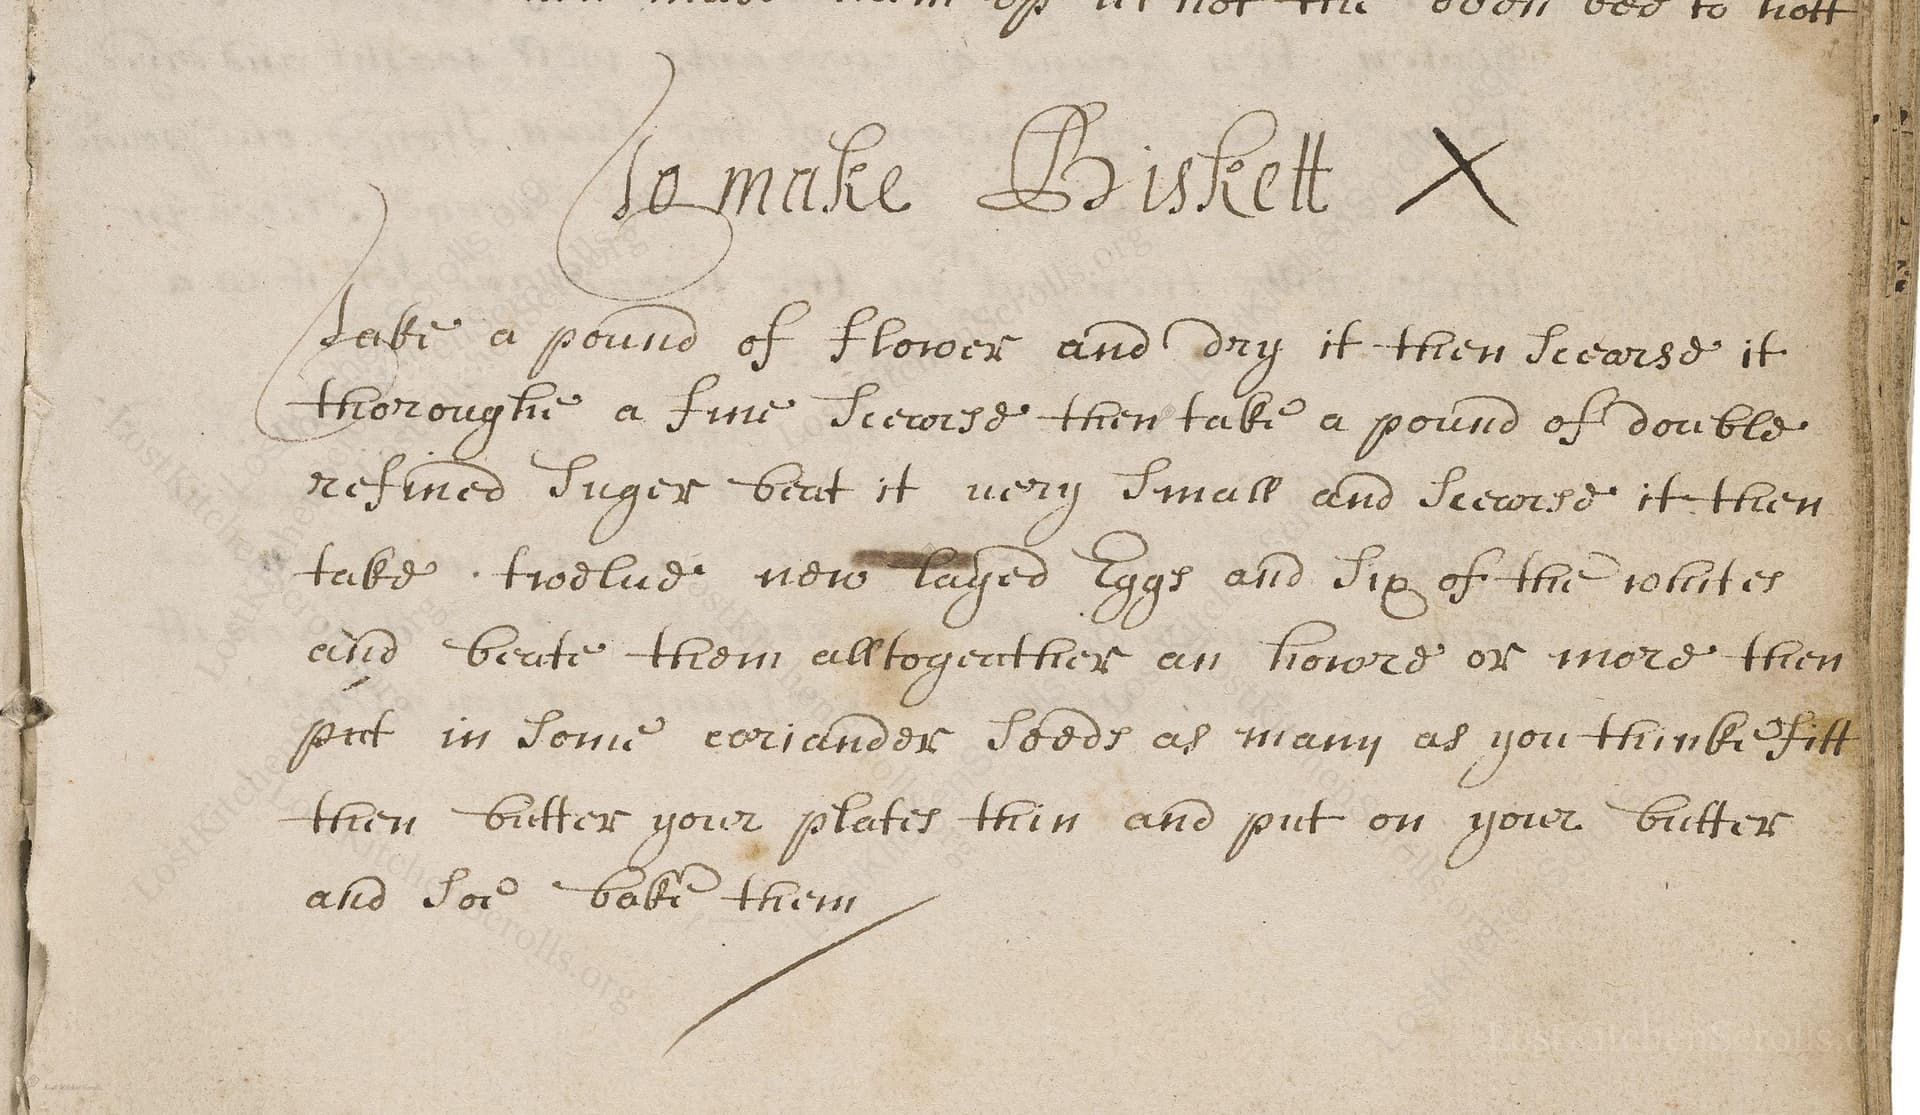 not the oven bee to hott
To make Biskett X
Take a pound of flower and dry it then scearse it
thoroughe a fine scearse then take a pound of double
refined suger beat it uery small and scearse it then
take twelue new layed Eggs and six of the whites
and beate them alltogeather an howre or more then
put in some coriander seeds as many as you thinke fitt
then butter your plates thin and put on your butter
and soe bake them
LostKitchenScrolls.org